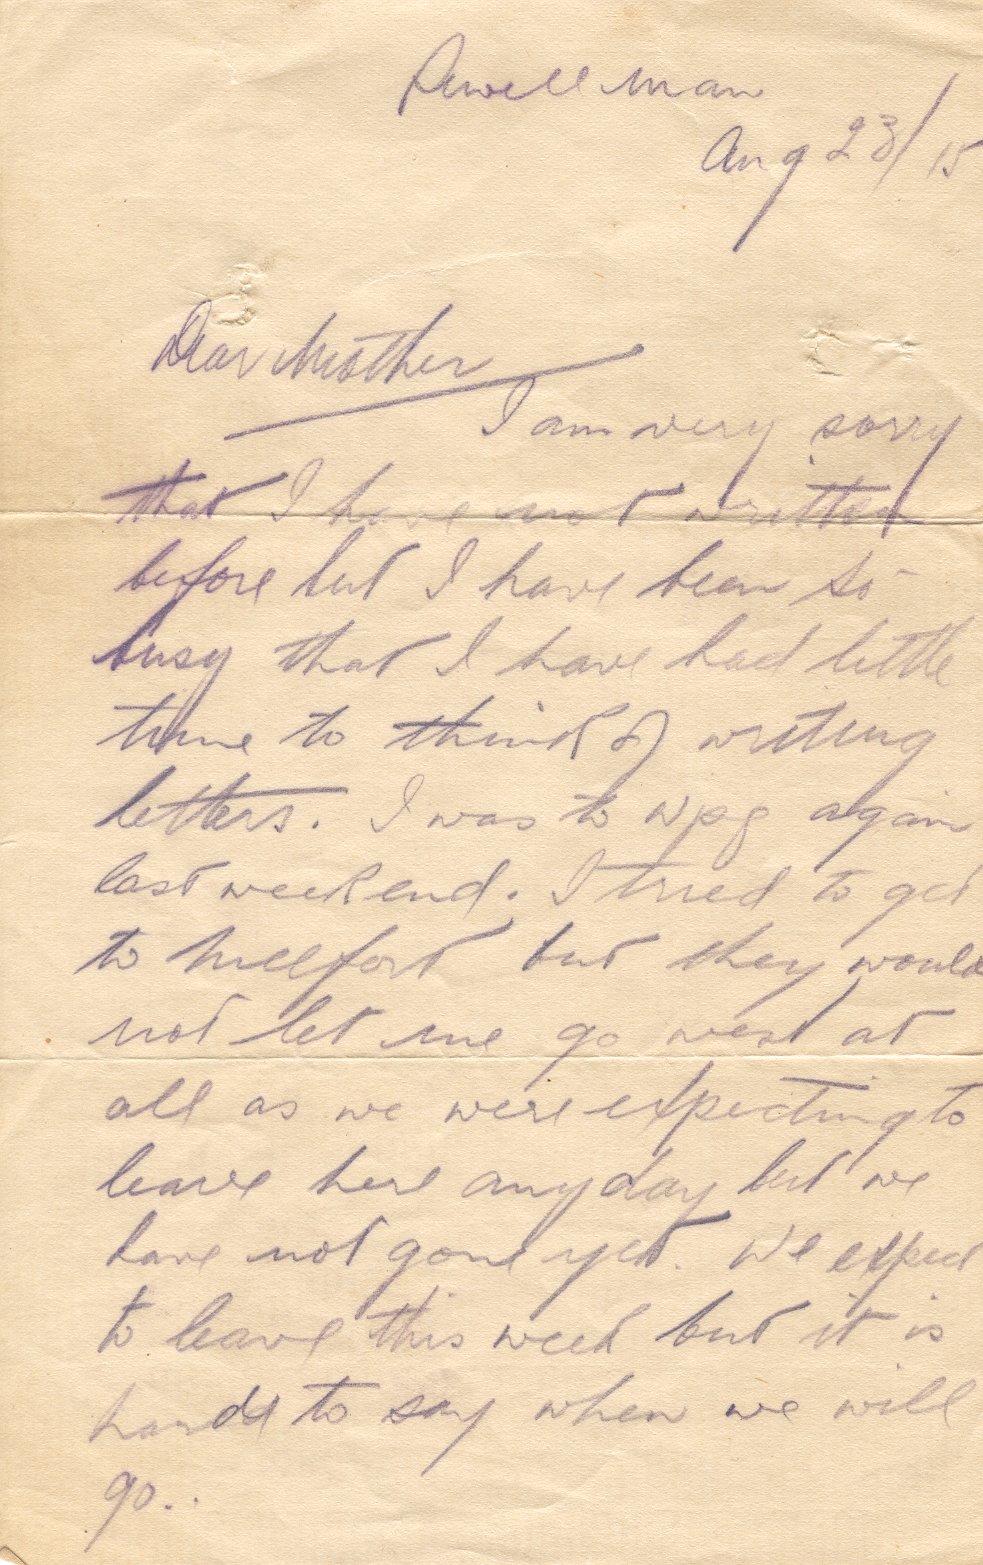 Sewell Man
Aug 23/15
Dear Mother
I am very sorry
that I have not written
before but I have been so
busy that I have had little
time to think of writing
letters. I was to Wpg again
last weekend. I tried to get
to Millfort but they would
not let me go west at
all as we were expecting to
leave here any day but we
have not gone yet. We expect
to leave this week but it is
hard to say when we will
go..